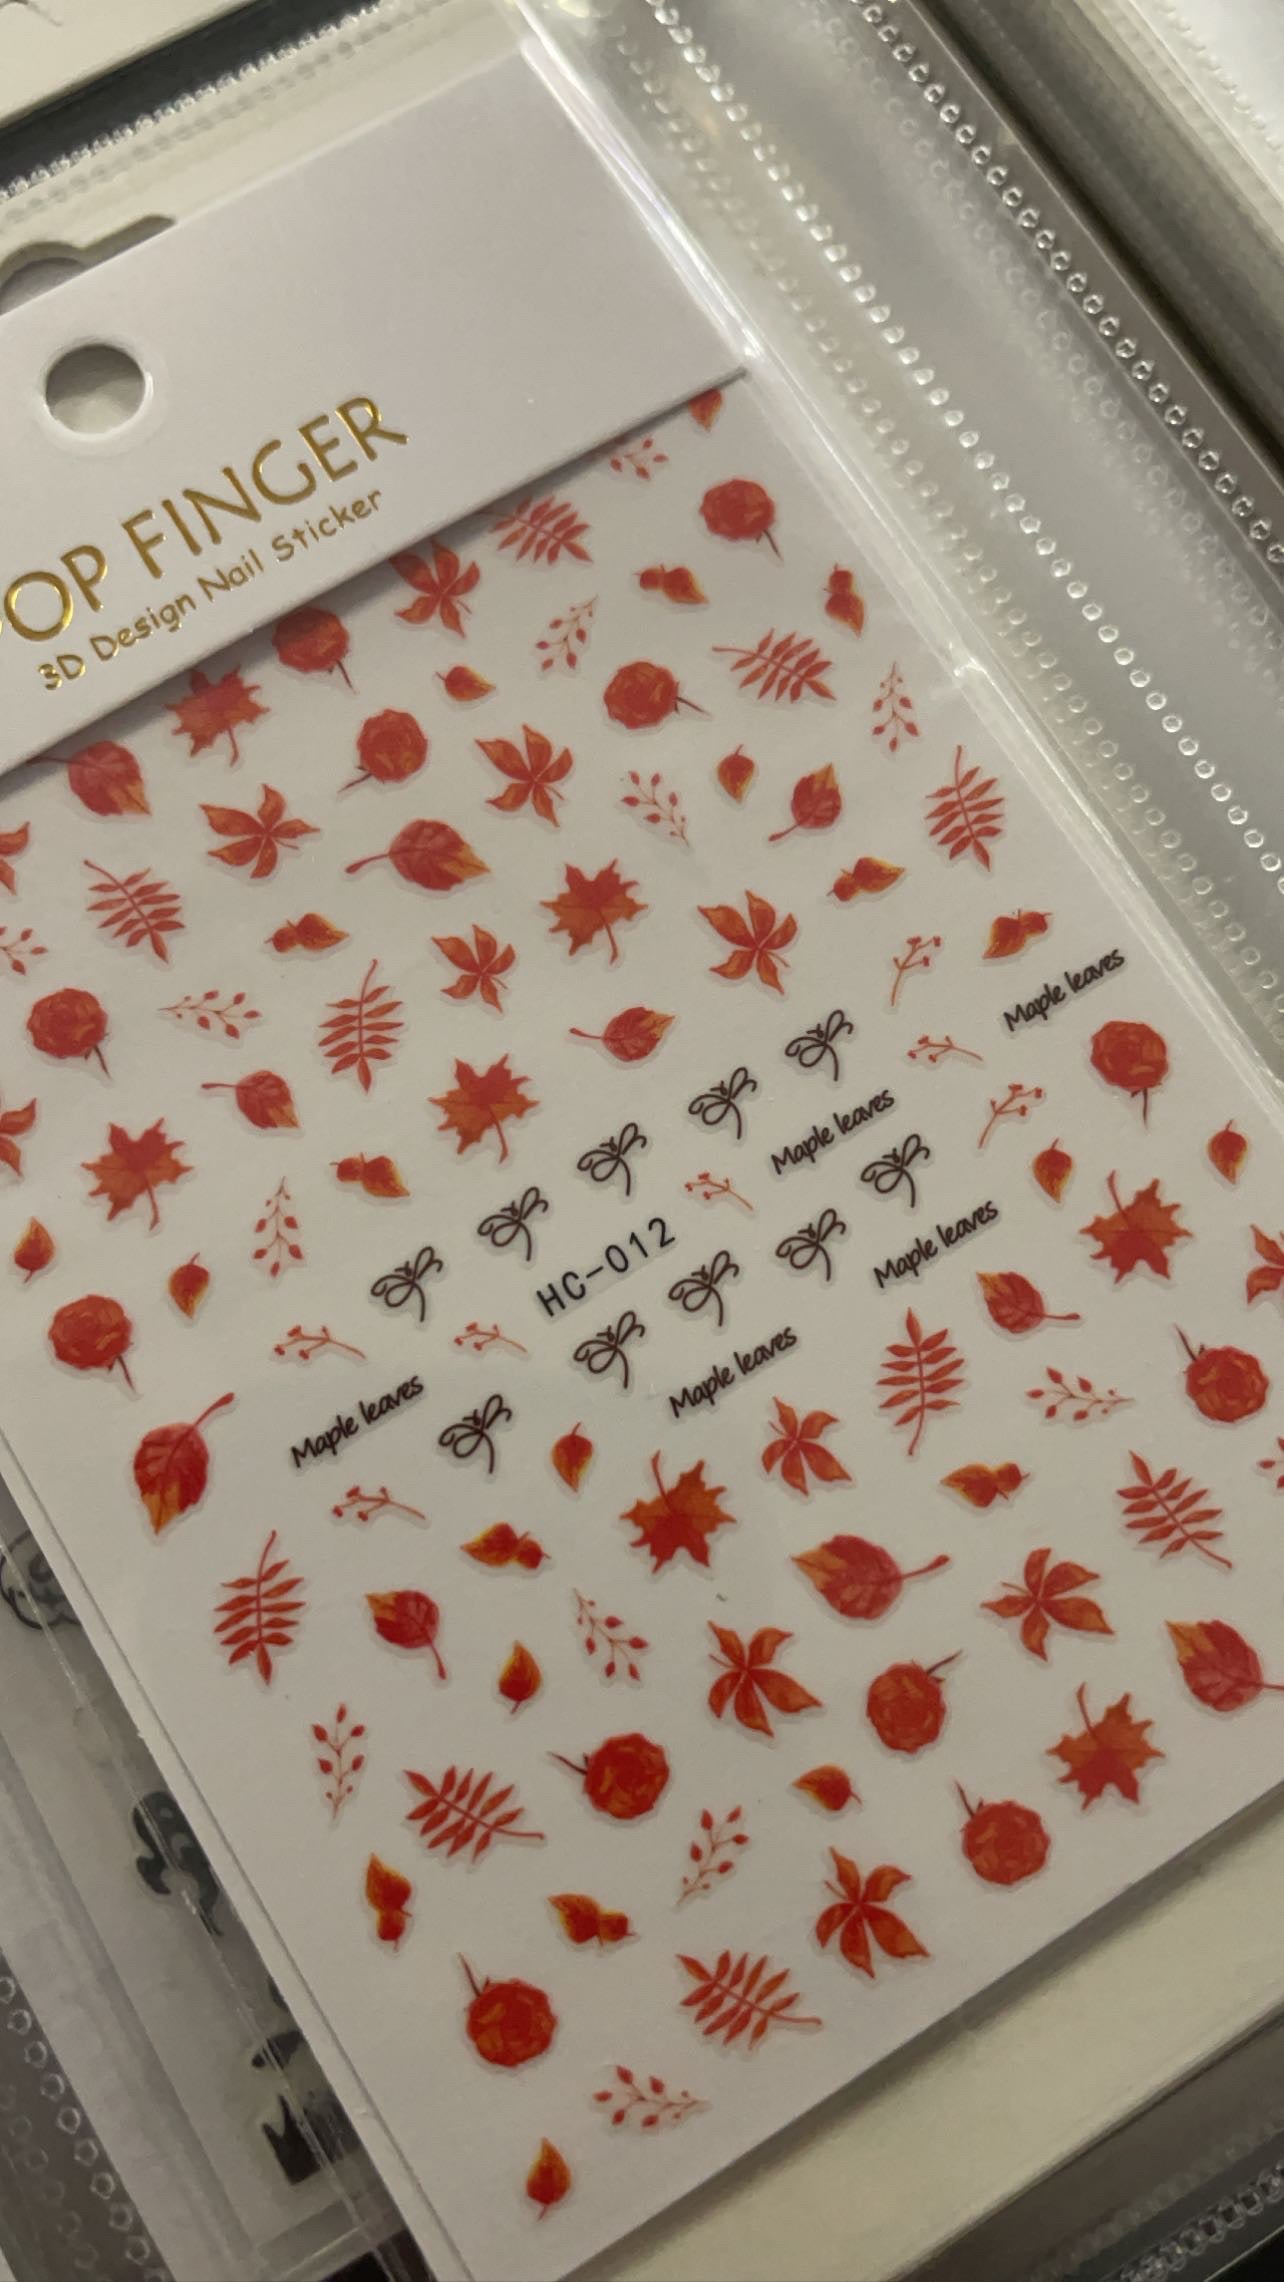 OP FINGER
3D Design Nail Sticker
Maple leaves
Maple leaves
HC-012
Maple leaves
Maple leaves
Maple leaves